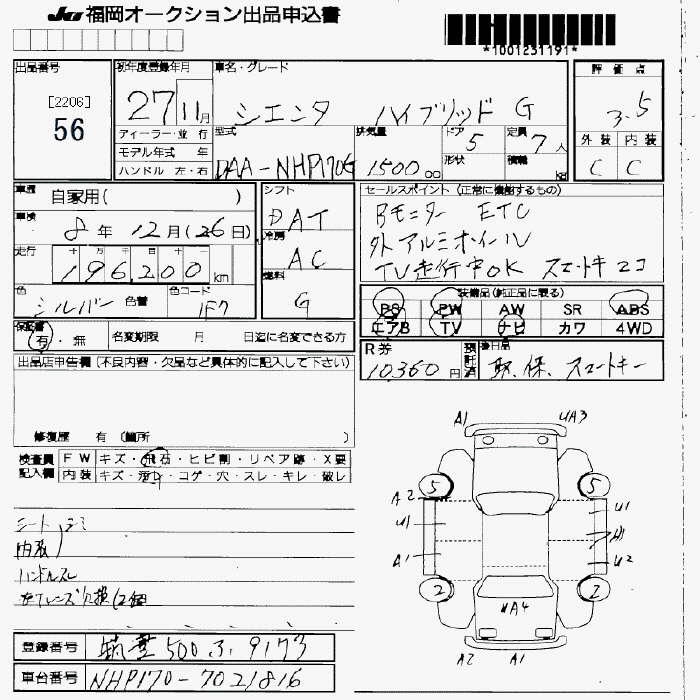 JU 福岡オークション出品申込書
*1001231191*
出品番号
[2206]
56
初年度登録年月
27 11月
車名・グレード
シエンタ ハイブリッド G
評価点
3.5
外装 内装
C C
ディーラー・並行
モデル年式 年
ハンドル 左・右
型式
DAA-NHP170G
排気量
1500 cc
ドア
5
形状
定員
7人
積載
kg
車歴
自家用( )
車検
8年 12月(26日)
走行
十 万 千 百 十 一
196,200 km
色
シルバー 色替
色コード
1F7
シフト
DAT
冷房
AC
燃料
G
セールスポイント (正常に機能するもの)
Bモニター ETC
外アルミホイール
TV走行中OK スマートキー2コ
装備品(純正品に限る)
PS PW AW SR ABS
エアB TV ナビ カワ 4WD
保証書
有・無
名変期限 月 日迄に名変できる方
R券
10,360円
預託済
後日品
取、保、スマートキー
出品店申告欄 (不良内容・欠品など具体的に記入して下さい)
修復歴 有 (箇所 )
検査員記入欄
FW キズ・飛石・ヒビ割・リペア跡・X要
内装 キズ・汚れ・コゲ・穴・スレ・キレ・破レ
シート シミ
内張
ハンドルスレ
登録番号
筑豊 500 ふ 9173
車台番号
NHP170-7021816
A1 UA3
5 5
A2
U1 U1
A1
U2
2 2
UA4
A2 A1